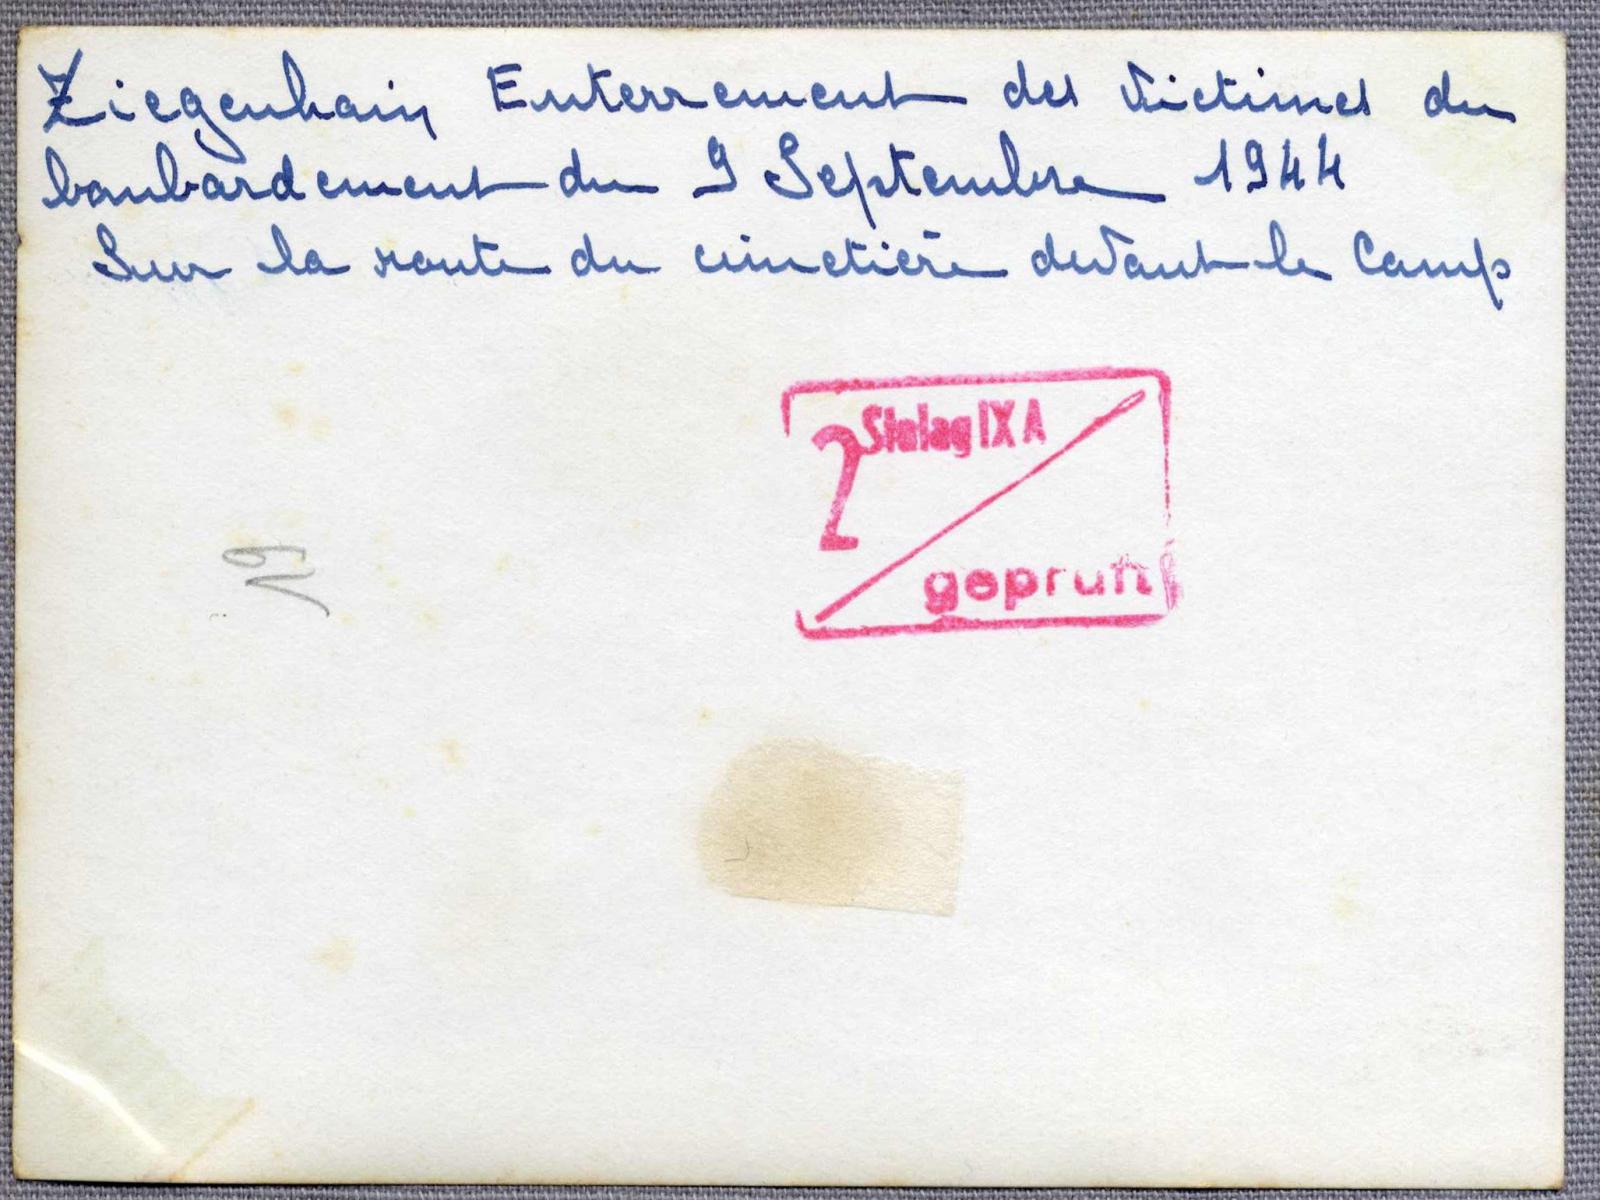 Ziegenhain Enterrement des Victimes du
bombardement du 9 Septembre 1944
Sur la route du cimetière devant le Camp
2 Stalag IX A
geprüft
19